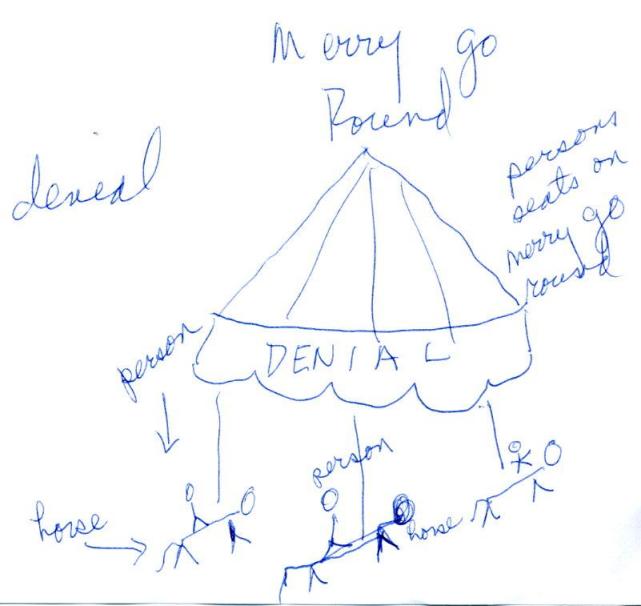 Merry go
Round
denial
persons
seats on
merry go
round
DENIAL
person
person
horse
horse